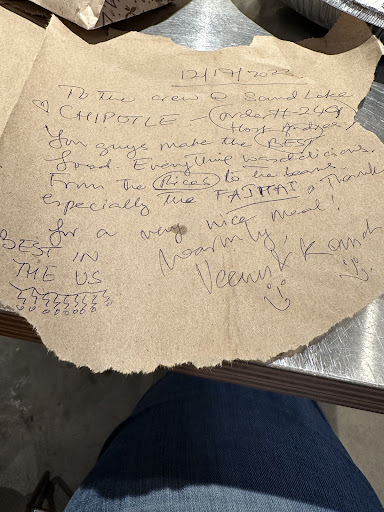 12/17/2022
To the crew @ Sand Lake
CHIPOTLE - (order# 249
You guys make the BEST
food. Everything was delicious.
From the Rices to the beans
especially the FAJHAI, Thank
for a very nice meal!
Warmly,
BEST IN
THE US